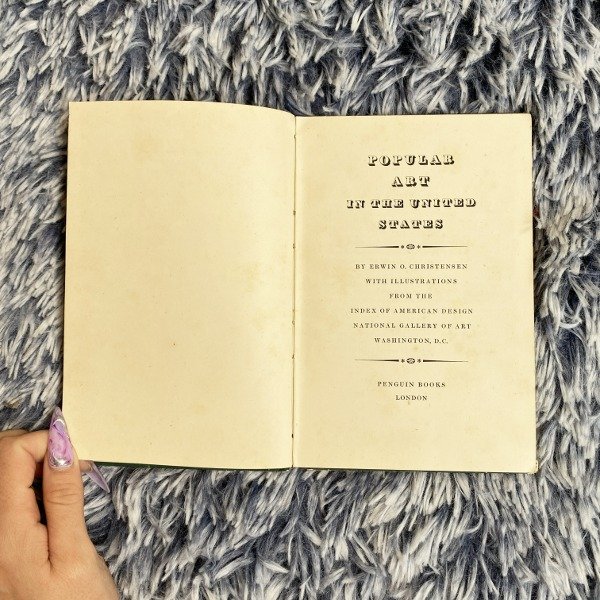 POPULAR
ART
IN THE UNITED
STATES
BY ERWIN O. CHRISTENSEN
WITH ILLUSTRATIONS
FROM THE
INDEX OF AMERICAN DESIGN
NATIONAL GALLERY OF ART
WASHINGTON, D.C.
PENGUIN BOOKS
LONDON